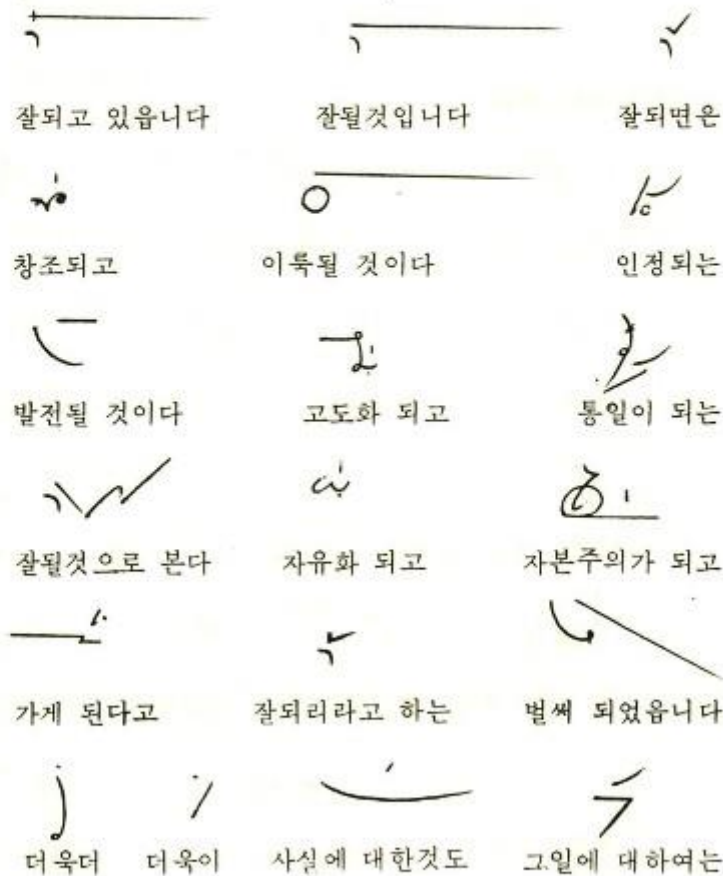 잘되고 있읍니다 잘될것입니다 잘되면은
창조되고 이룩될 것이다 인정되는
발전될 것이다 고도화 되고 통일이 되는
잘될것으로 본다 자유화 되고 자본주의가 되고
가게 된다고 잘되리라고 하는 벌써 되었읍니다
더욱더 더욱이 사실에 대한것도 그일에 대하여는